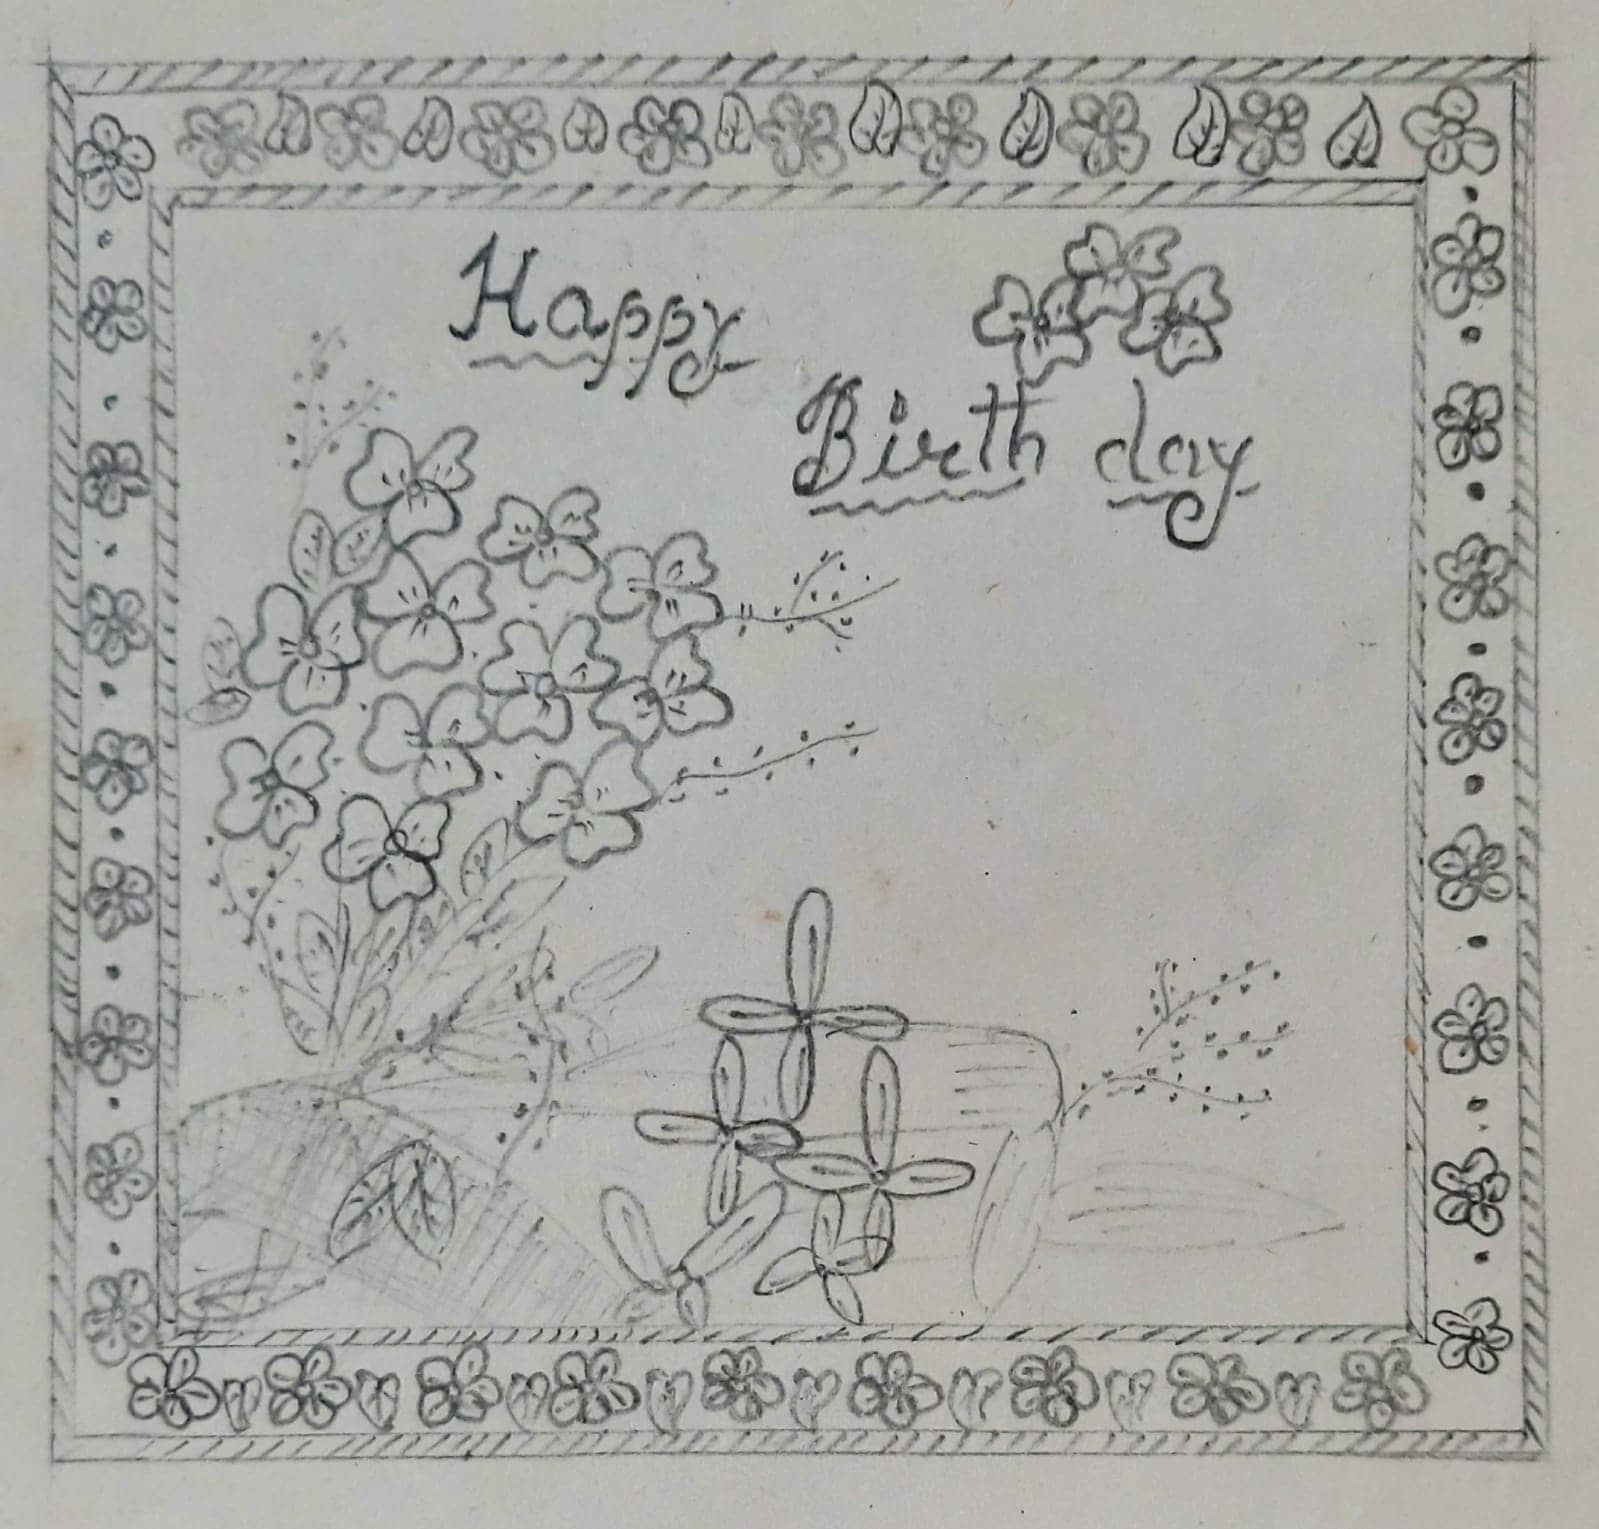 Happy
Birth day